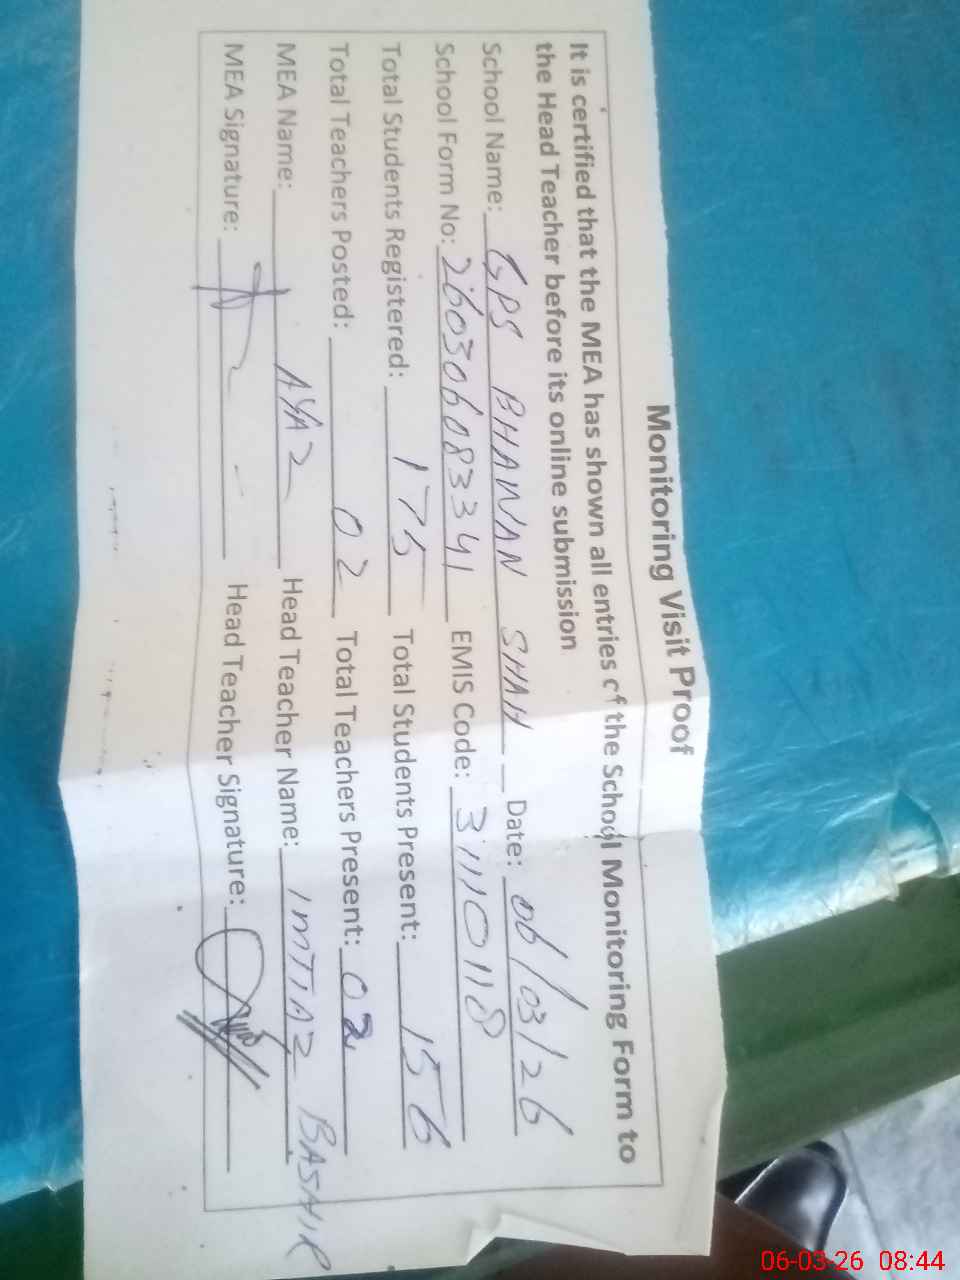 Monitoring Visit Proof
It is certified that the MEA has shown all entries of the School Monitoring Form to
the Head Teacher before its online submission
School Name: GPS BHAWAN SHAH Date: 06/03/26
School Form No: 260306083341 EMIS Code: 31110118
Total Students Registered: 175 Total Students Present: 156
Total Teachers Posted: 02 Total Teachers Present: 02
MEA Name: AYAZ Head Teacher Name: IMTIAZ BASHIR
MEA Signature: Head Teacher Signature:
06-03-26 08:44